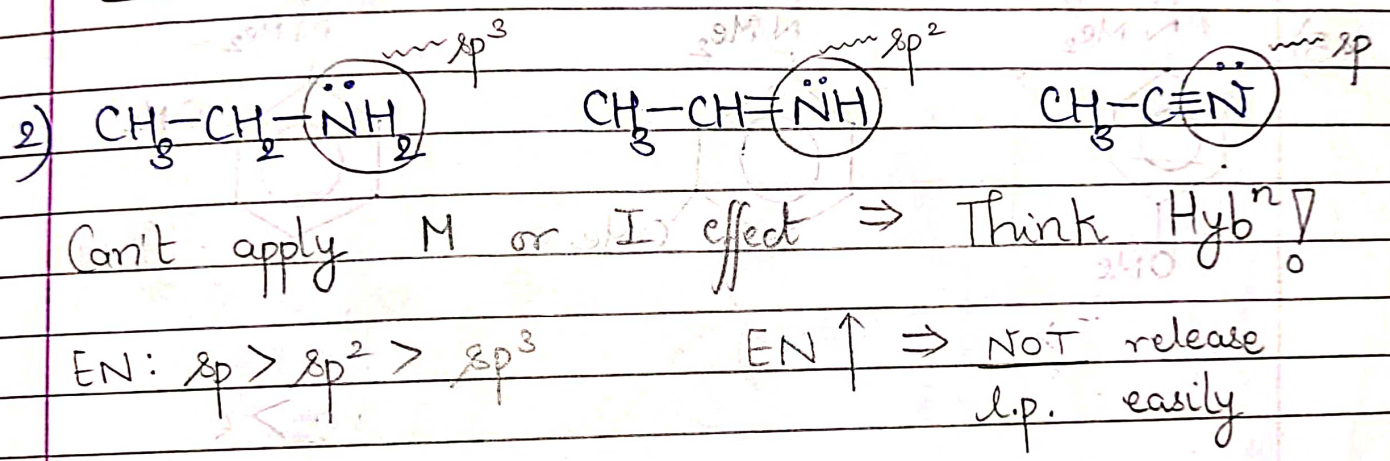 sp³ sp² sp
2) CH₃-CH₂-N̈H₂ CH₃-CH=N̈H CH₃-C≡N̈
Can't apply M or I effect ⇒ Think Hybⁿ!
EN: sp > sp² > sp³ EN↑ ⇒ NOT release
l.p. easily